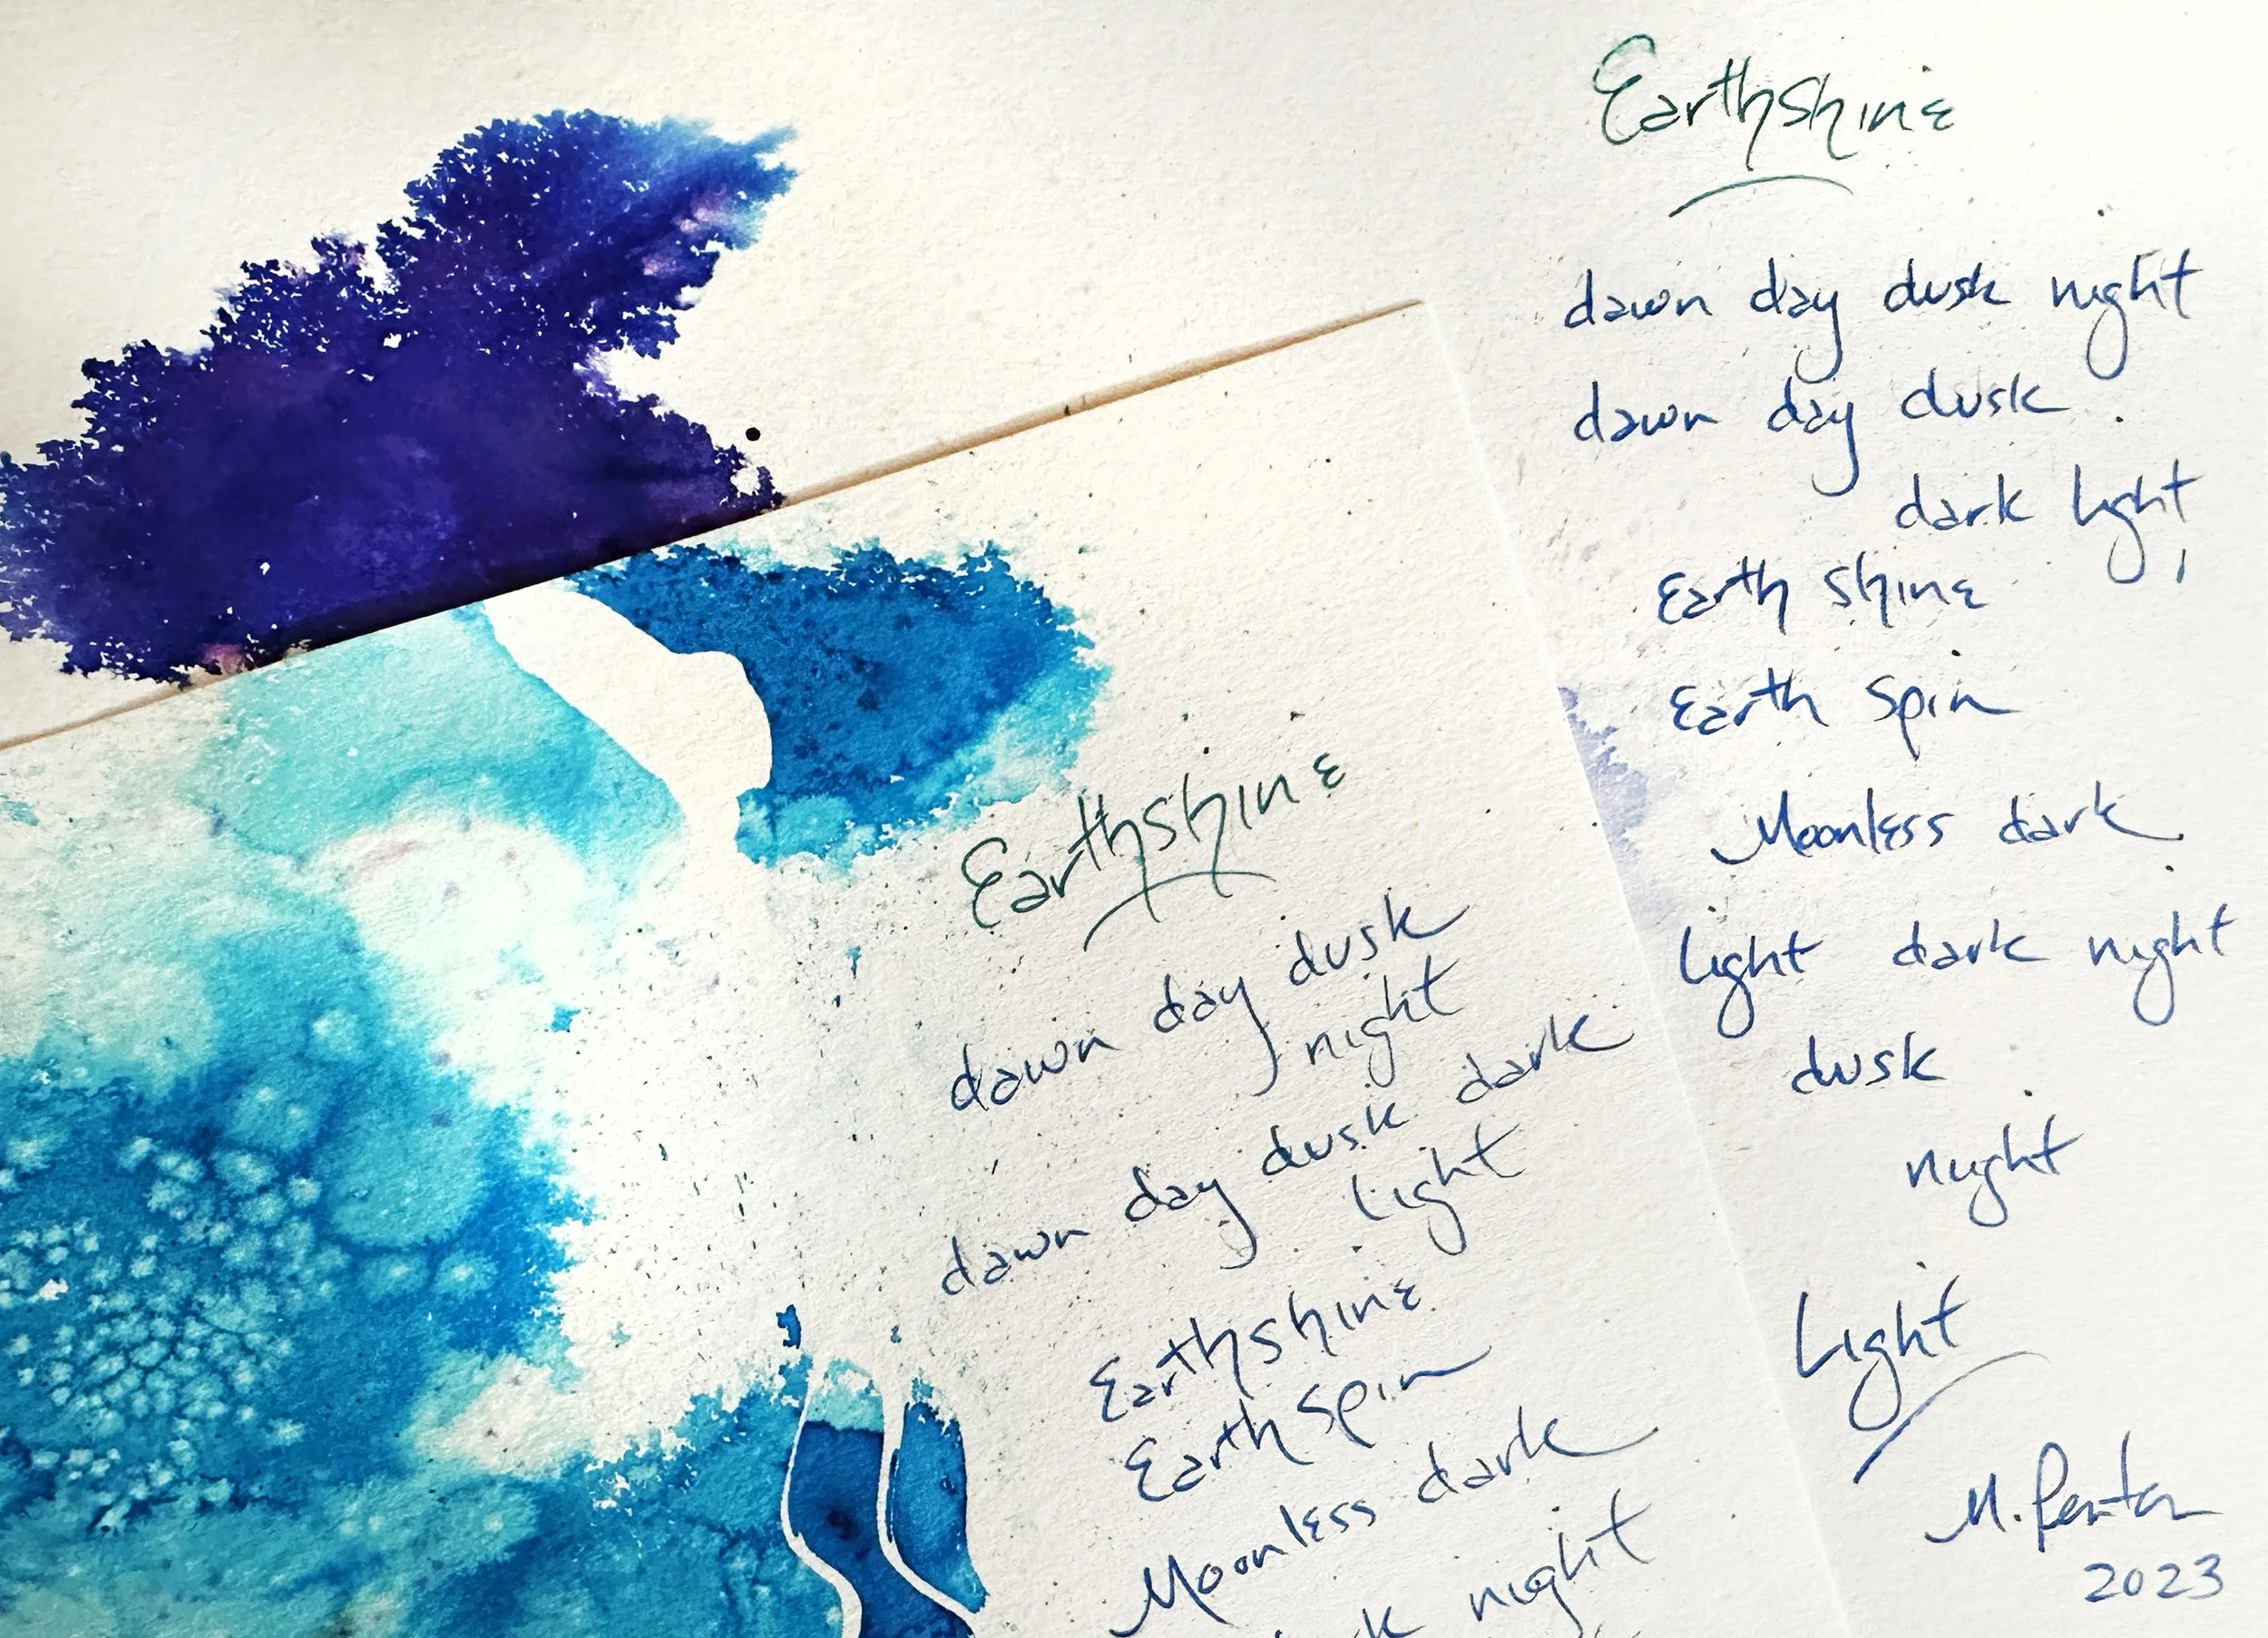 Earthshine
dawn day dusk night
dawn day dusk
dark light
Earth Shine
Earth Spin
Moonless dark
light dark night
dusk
night
Light
M.
2023
Earthshine
dawn day dusk
night
dawn day dusk dark
light
Earthshine
Earth Spin
Moonless dark
night